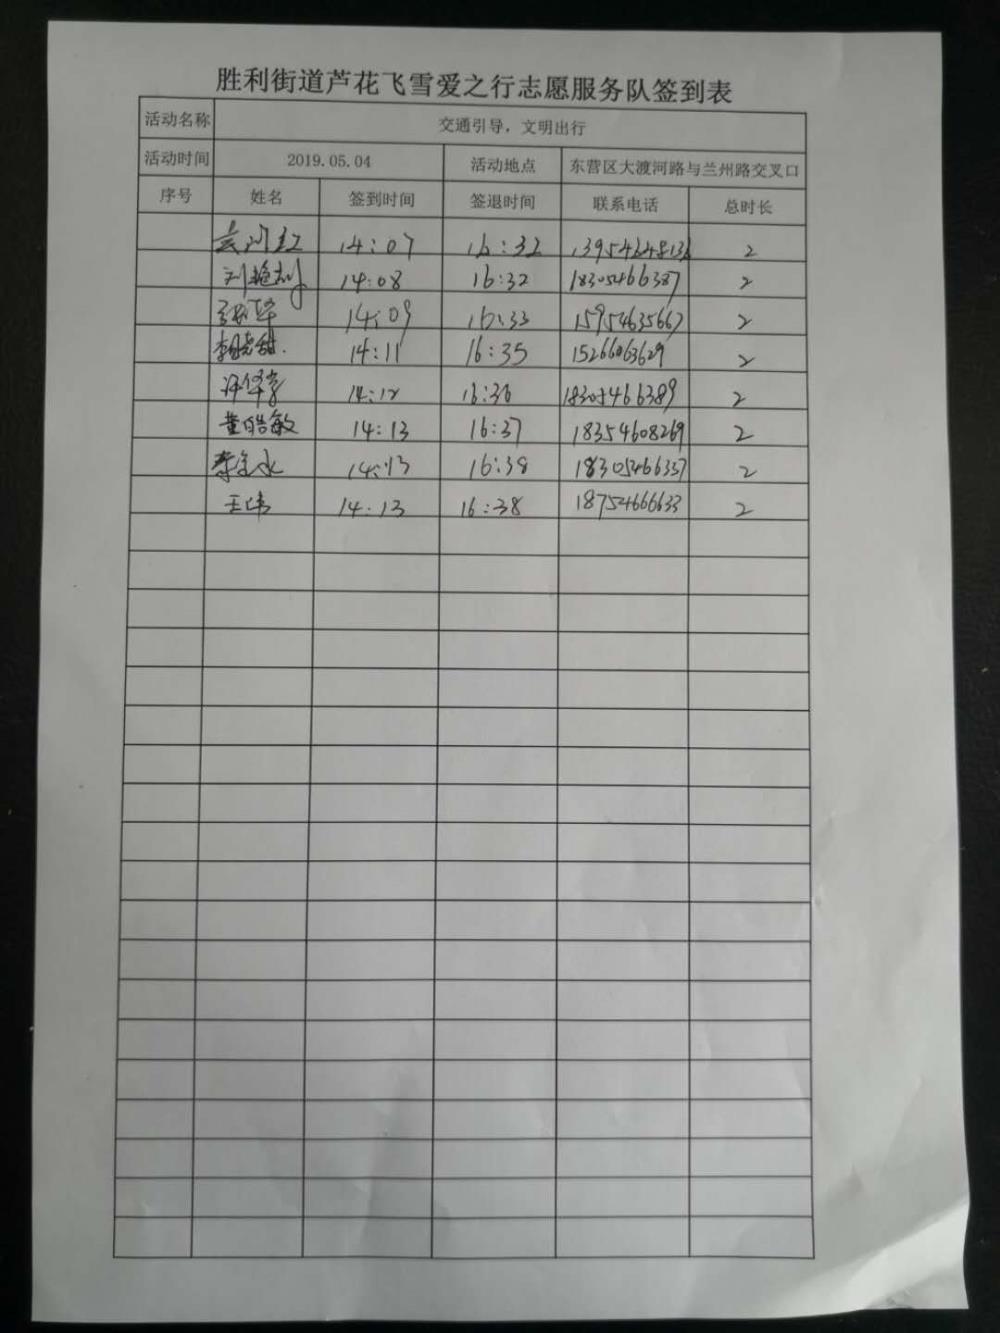 胜利街道芦花飞雪爱之行志愿服务队签到表
活动名称 交通引导，文明出行
活动时间 2019.05.04 活动地点 东营区大渡河路与兰州路交叉口
序号 姓名 签到时间 签退时间 联系电话 总时长
14:07 16:32 2
14:08 16:32 18305466387 2
14:09 16:33 15954635667 2
14:11 16:35 15266063629 2
14:12 16:36 18305466389 2
董皓敏 14:13 16:37 18354608269 2
14:13 16:38 18305466357 2
王伟 14:13 16:38 18754666633 2